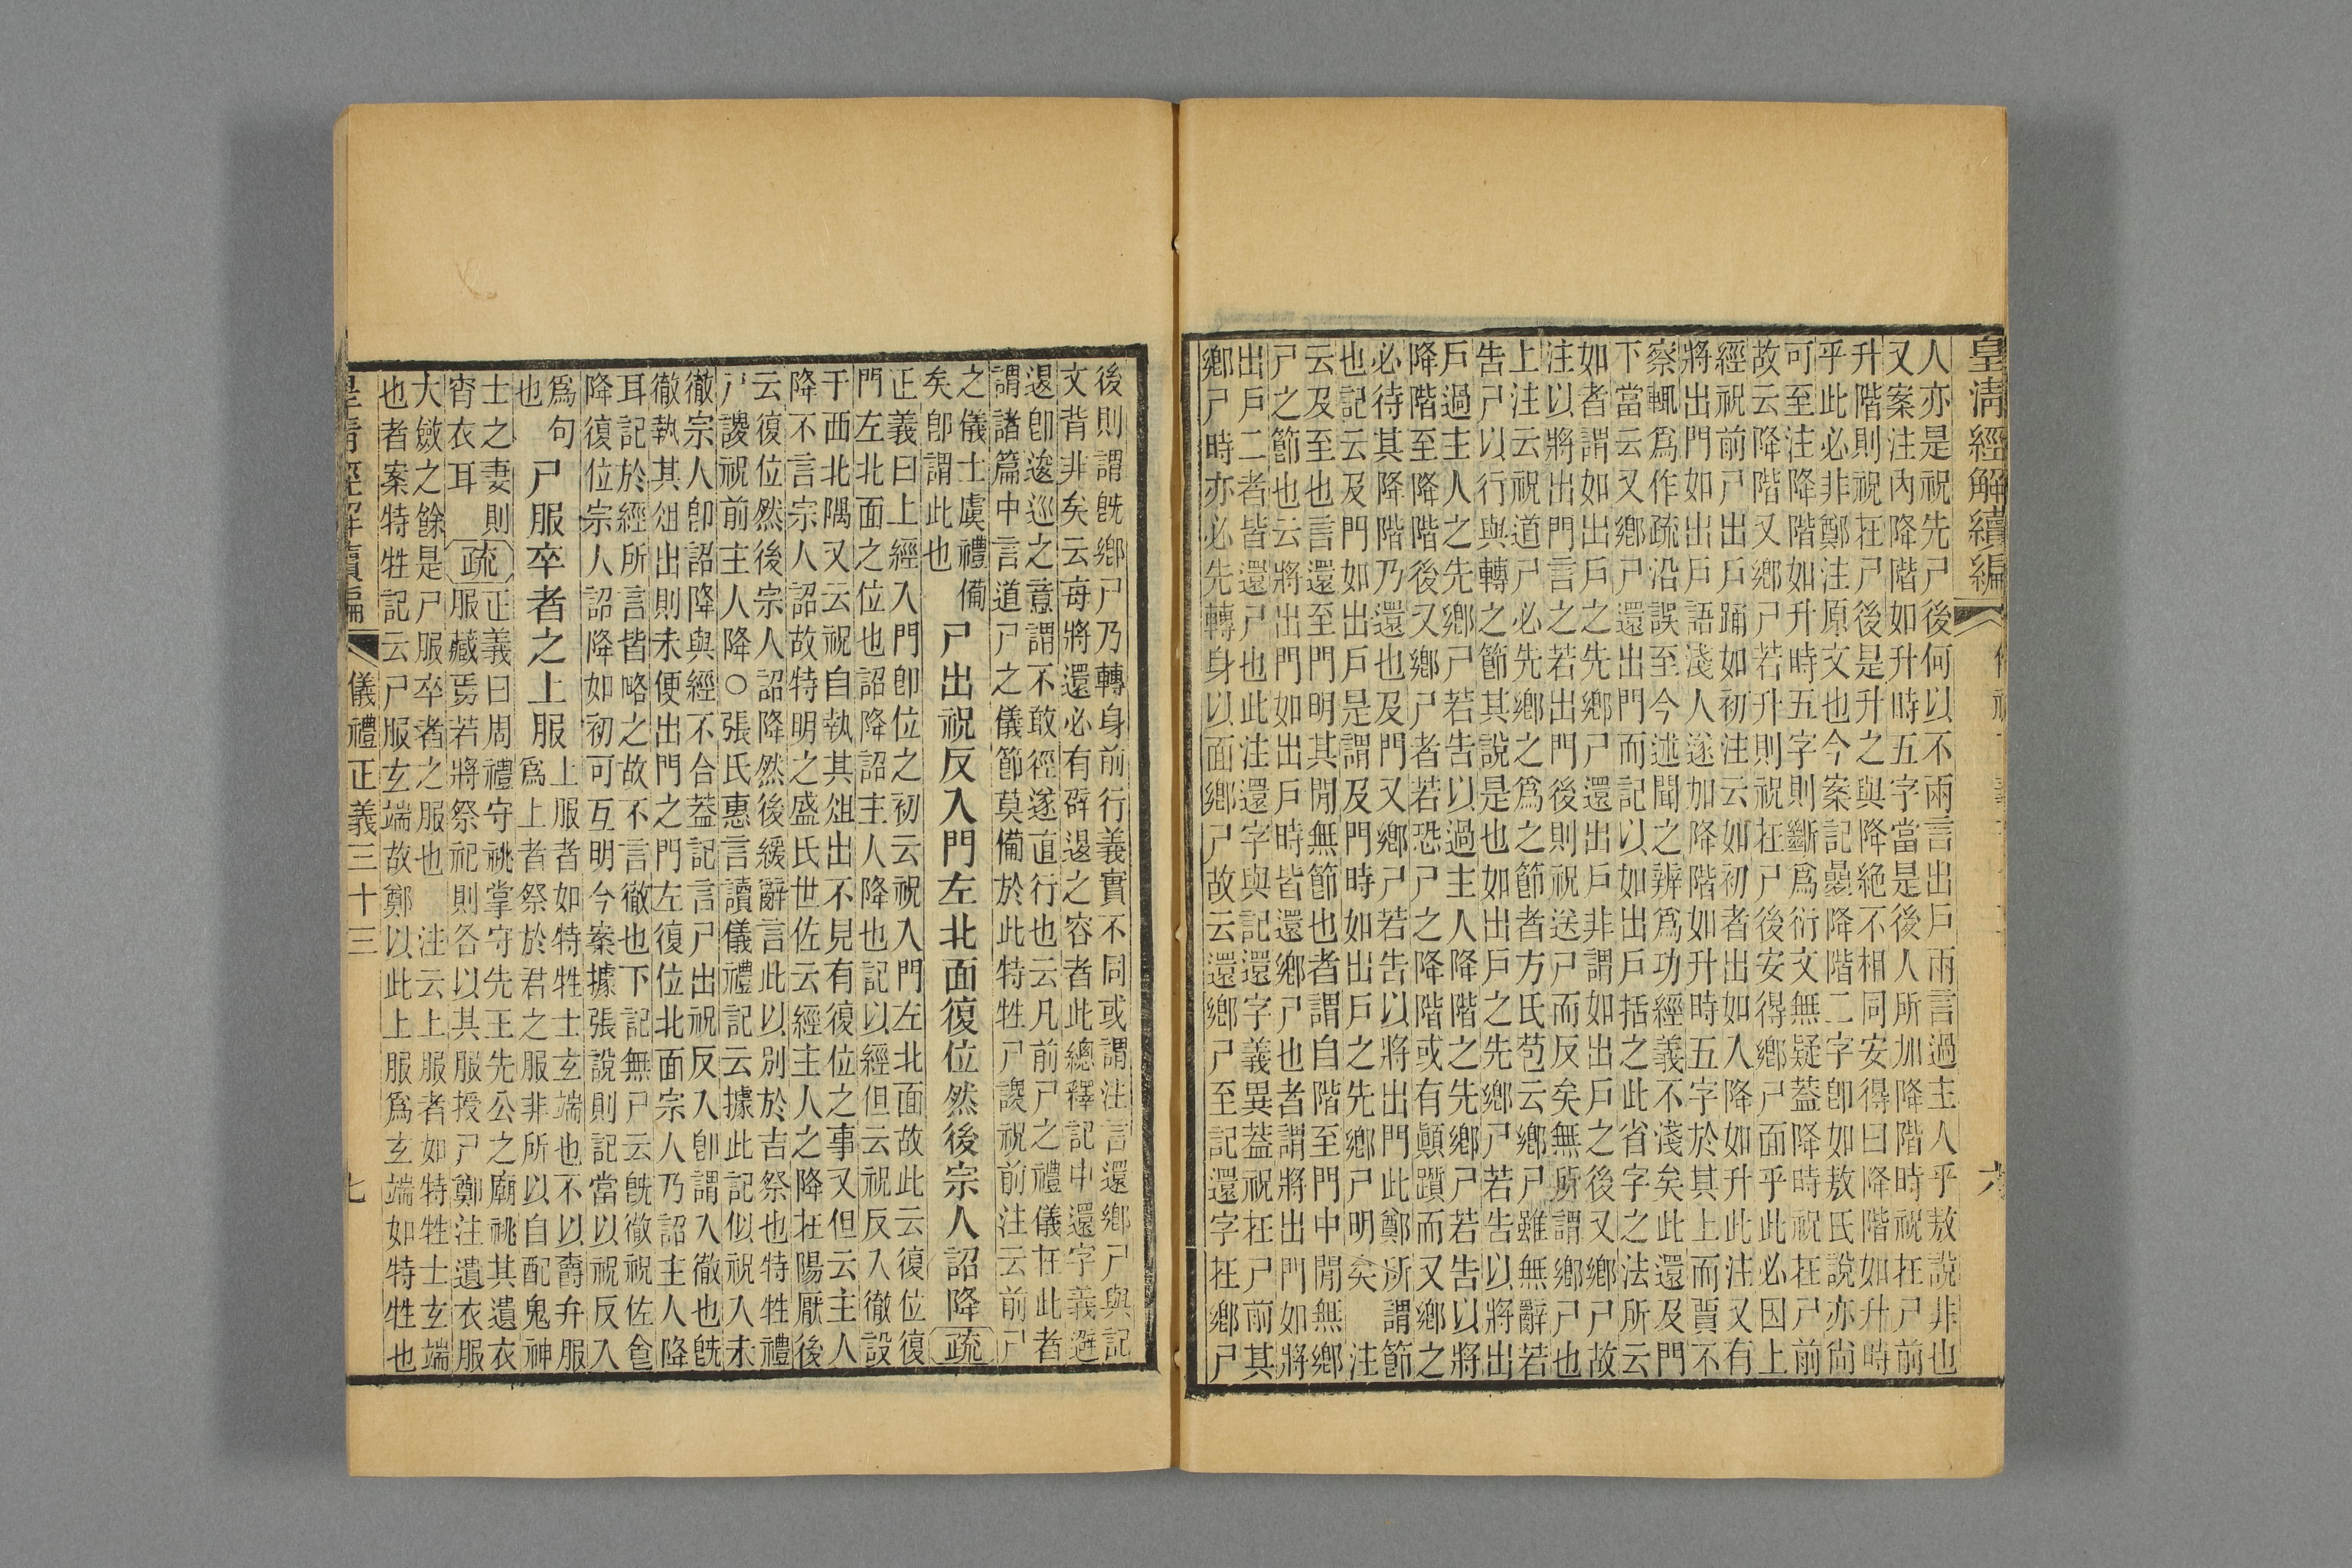 皇清經解續編
人亦是祝先尸後何以不兩言出戶兩言過主人乎敖說非也
又案注內降階如升時五字當是後人所加降階時祝在尸前
升階則祝在尸後是升之與降絶不相同安得曰降階如升時
乎此必非鄭注原文也今案記曡降階二字卽如敖氏說亦尙
可至注降階如升時五字則斷爲衍文無疑蓋降時祝在尸前
故云降階又鄉尸若升則祝在尸後安得鄉尸面乎此必因上
經祝前尸出戶踊如初注云如初者出如入降如升此注又有
將出門如出戶語淺人遂加降階如升時五字於其上而賈不
察輒爲作疏沿誤至今述聞之辨爲功經義不淺矣此還及門
下當云又鄉尸還出門而記以如出戶括之此省字之法所云
如者謂如出戶之先鄉尸還出戶非謂如出戶之後又鄉尸故
注以將出門言之若出門後則祝送尸而反矣無所謂鄉尸也
上注云祝道尸必先鄉之爲之節者方氏苞云鄉尸雖無辭若
告尸以行與轉之節其說是也如出戶之先鄉尸若告以將出
戶過主人之先鄉尸若告以過主人降階之先鄉尸若告以將
降階至降階後又鄉尸者若恐尸之降階或有顚躓而又鄉之
必待其降階乃還也及門又鄉尸若告以將出門此鄭所謂節
也記云及門如出戶是謂及門時如出戶之先鄉尸明矣　注
云及至也言還至門明其閒無節也者謂自階至門中閒無鄉
尸之節也云將出門如出戶時皆還鄉尸也者謂將出門如將
出戶二者皆還尸也此注還字與記還字義異蓋祝在尸前其
鄉尸時亦必先轉身以面鄉尸故云還鄉尸至記還字在鄉尸
後則謂旣鄉尸乃轉身前行義實不同或謂注言還鄉尸與記
文背非矣云每將還必有辟退之容者此總釋記中還字義逡
遁卽逡巡之意謂不敢徑遂直行也云凡前尸之禮儀在此者
謂諸篇中言道尸之儀節莫備於此特牲尸謖祝前注云前尸
之儀士虞禮備
矣卽謂此也
尸出祝反入門左北面復位然後宗人詔降疏
正義曰上經入門卽位之初云祝入門左北面故此云復位復
門左北面之位也詔降詔主人降也記以經但云祝反入徹設
于西北隅又云祝自執其俎出不見有復位之事又但云主人
降不言宗人詔故特明之盛氏世佐云經主人之降在陽厭後
云復位然後宗人詔降然後緩辭言此以別於吉祭也特牲禮
尸謖祝前主人降○張氏惠言讀儀禮記云據此記似祝入未
徹宗人卽詔降與經不合蓋記言尸出祝反入卽謂入徹也旣
徹執其俎出則未便出門之門左復位北面宗人乃詔主人降
耳記於經所言皆略之故不言徹也下記無尸云旣徹祝佐食
降復位宗人詔降如初可互明今案據張說則記當以祝反入
爲句
也
尸服卒者之上服
上服者如特牲士玄端也不以爵弁服
爲上者祭於君之服非所以自配鬼神
士之妻則
宵衣耳
疏
正義曰周禮守祧掌守先王先公之廟祧其遺衣
服藏焉若將祭祀則各以其服授尸鄭注遺衣服
大斂之餘是尸服卒者之服也　注云上服者如特牲士玄端
也者案特牲記云尸服玄端故鄭以此上服爲玄端如特牲也
儀禮正義三十三
七